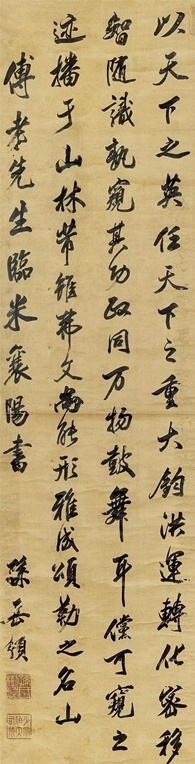 以天下之英任天下之重大鈞洪運轉化密移
智隨識孰窺其功政同万物鼓舞耳儻可窺之
迹播于山林芾雖恭文尚能形雅成頌勒之名山
傅孝先生臨米襄陽書
孫岳頒